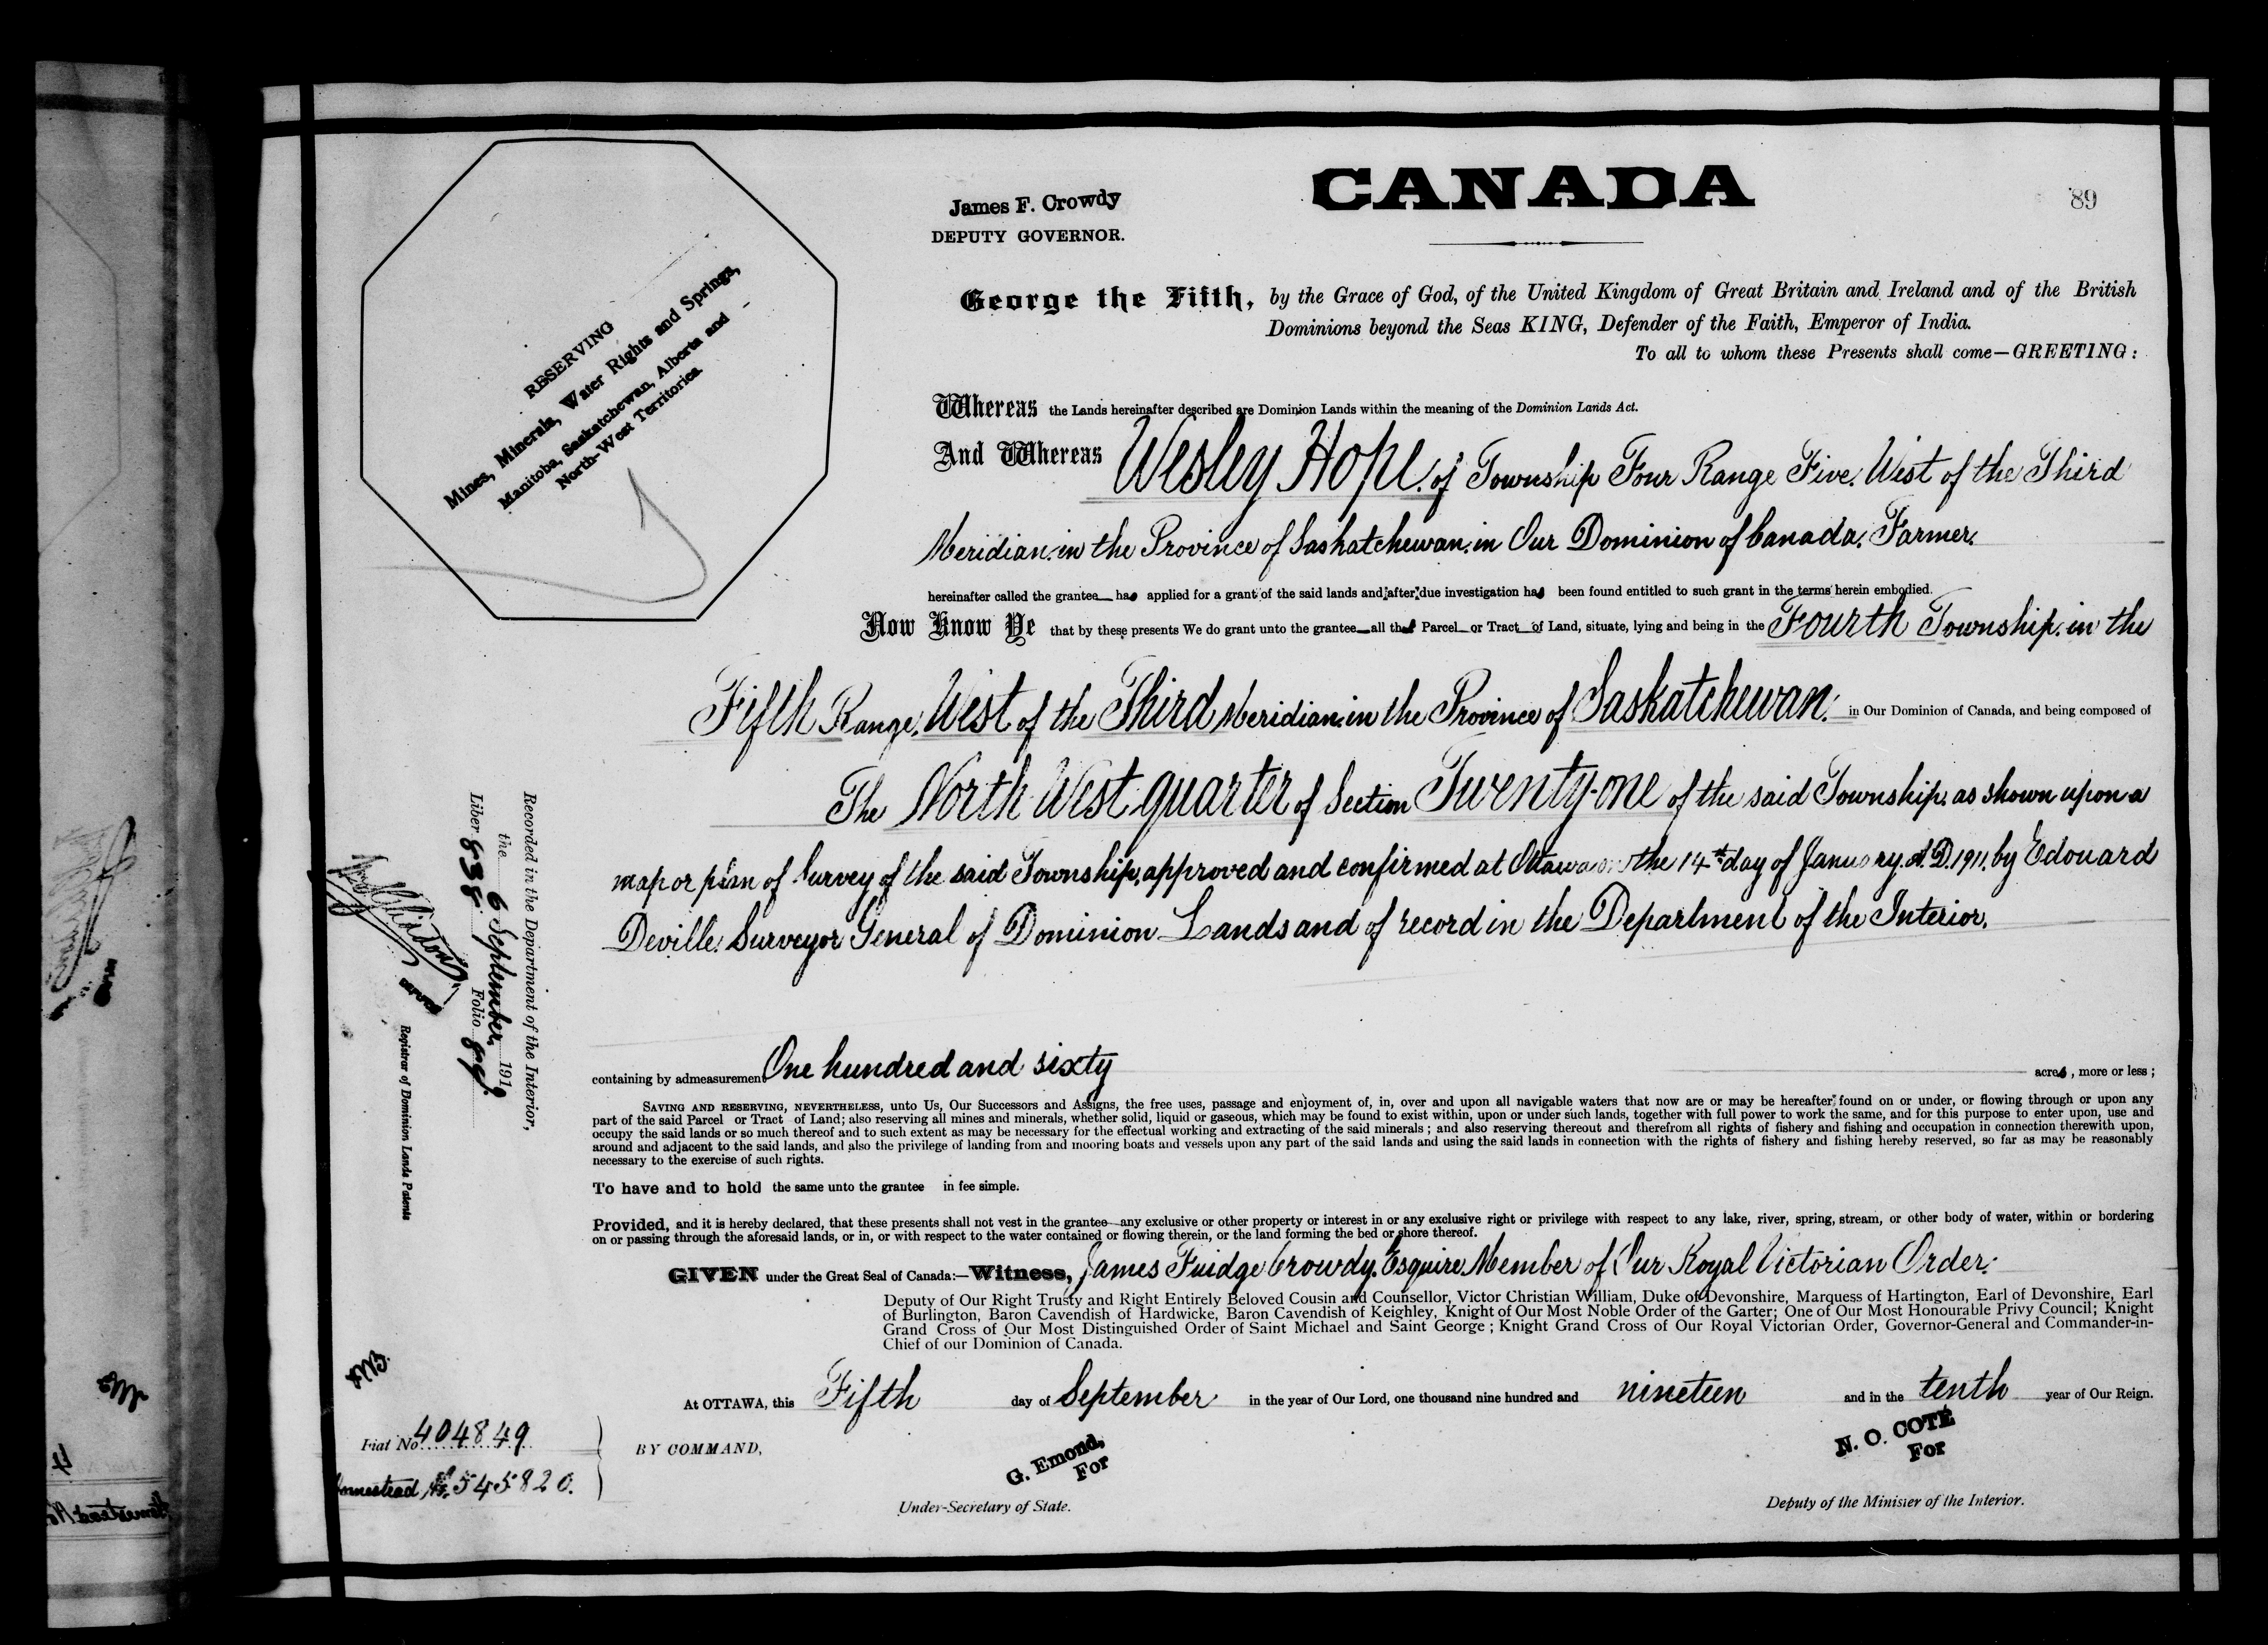 CANADA
89
James F. Crowdy
DEPUTY GOVERNOR.
RESERVING
Mines, Minerals, Water Rights and Springs,
Manitoba, Saskatchewan, Alberta and
North-West Territories
George the Fifth, by the Grace of God, of the United Kingdom of Great Britain and Ireland and of the British
Dominions beyond the Seas KING, Defender of the Faith, Emperor of India.
To all to whom these Presents shall come—GREETING:
Whereas the Lands hereinafter described are Dominion Lands within the meaning of the Dominion Lands Act.
And Whereas Wesley Hope, of Township Four Range Five, West of the Third
Meridian, in the Province of Saskatchewan, in Our Dominion of Canada, Farmer,
hereinafter called the grantee has applied for a grant of the said lands and after due investigation has been found entitled to such grant in the terms herein embodied.
Now Know Ye that by these presents We do grant unto the grantee all that Parcel or Tract of Land, situate, lying and being in the Fourth Township, in the
Fifth Range, West of the Third Meridian, in the Province of Saskatchewan, in Our Dominion of Canada, and being composed of
The North West quarter of Section Twenty-one of the said Township, as shown upon a
map or plan of Survey of the said Township, approved and confirmed at Ottawa on the 14th day of January, A.D. 1911, by Edouard
Deville, Surveyor General of Dominion Lands and of record in the Department of the Interior,
containing by admeasurement One hundred and sixty acres, more or less;
SAVING AND RESERVING, NEVERTHELESS, unto Us, Our Successors and Assigns, the free uses, passage and enjoyment of, in, over and upon all navigable waters that now are or may be hereafter found on or under, or flowing through or upon any
part of the said Parcel or Tract of Land; also reserving all mines and minerals, whether solid, liquid or gaseous, which may be found to exist within, upon or under such lands, together with full power to work the same, and for this purpose to enter upon, use and
occupy the said lands or so much thereof and to such extent as may be necessary for the effectual working and extracting of the said minerals; and also reserving thereout and therefrom all rights of fishery and fishing and occupation in connection therewith upon,
around and adjacent to the said lands, and also the privilege of landing from and mooring boats and vessels upon any part of the said lands and using the said lands in connection with the rights of fishery and fishing hereby reserved, so far as may be reasonably
necessary to the exercise of such rights.
To have and to hold the same unto the grantee in fee simple.
Provided, and it is hereby declared, that these presents shall not vest in the grantee any exclusive or other property or interest in or any exclusive right or privilege with respect to any lake, river, spring, stream, or other body of water, within or bordering
on or passing through the aforesaid lands, or in, or with respect to the water contained or flowing therein, or the land forming the bed or shore thereof.
GIVEN under the Great Seal of Canada:—Witness, James Fuidge Crowdy, Esquire, Member of Our Royal Victorian Order:
Deputy of Our Right Trusty and Right Entirely Beloved Cousin and Counsellor, Victor Christian William, Duke of Devonshire, Marquess of Hartington, Earl of Devonshire, Earl
of Burlington, Baron Cavendish of Hardwicke, Baron Cavendish of Keighley, Knight of Our Most Noble Order of the Garter; One of Our Most Honourable Privy Council; Knight
Grand Cross of Our Most Distinguished Order of Saint Michael and Saint George; Knight Grand Cross of Our Royal Victorian Order, Governor-General and Commander-in-
Chief of our Dominion of Canada.
At OTTAWA, this Fifth day of September in the year of Our Lord, one thousand nine hundred and nineteen and in the tenth year of Our Reign.
BY COMMAND,
G. Emond,
For
Under-Secretary of State.
N. O. COTÉ
For
Deputy of the Minister of the Interior.
Fiat No. 404849
Homestead No. 545820.
Recorded in the Department of the Interior,
the 6 September, 1919
Liber 838 Folio 89
Registrar of Dominion Lands Patents